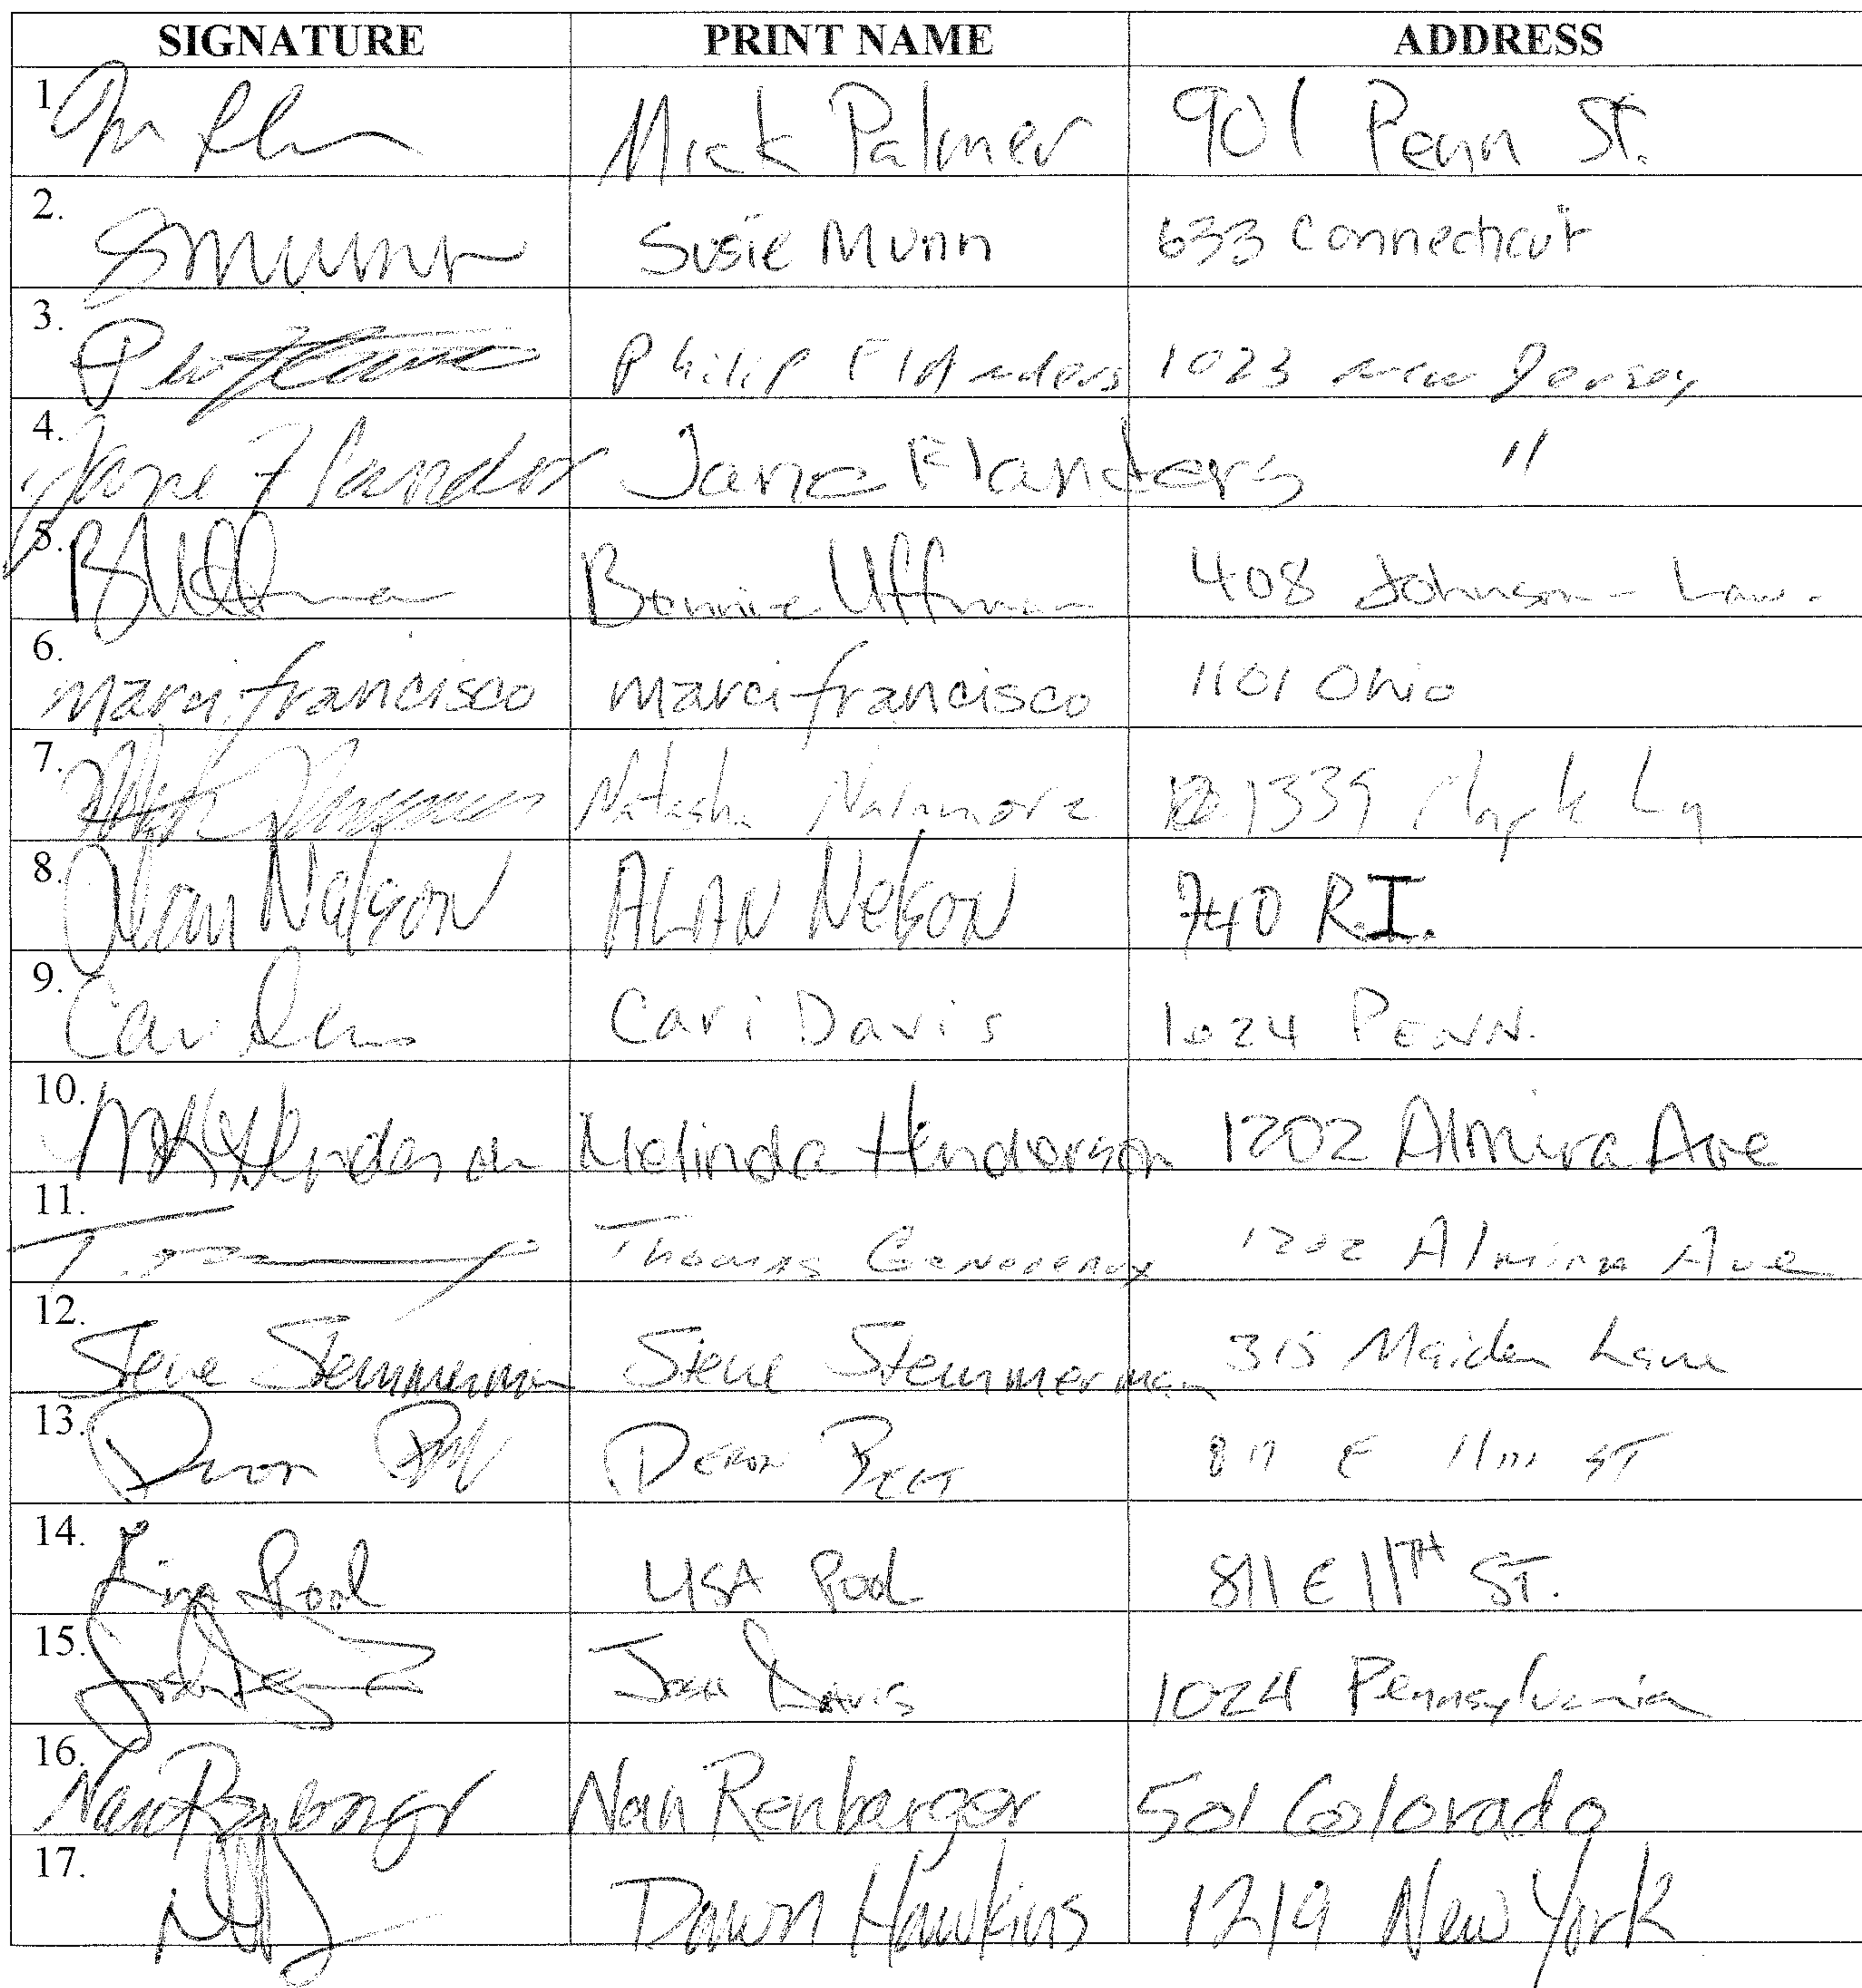 SIGNATURE PRINT NAME ADDRESS
1. Mick Palmer 901 Penn St.
2. SMunn Susie Munn 633 Connecticut
3. Philip Flanders 1023 new Jersey
4. Jane Flanders Jane Flanders "
5. BUffman Bonnie Uffman 408 Johnson - Law.
6. marci francisco marci francisco 1101 Ohio
7. Natasha 1339 Ln
8. Alan Nelson ALAN Nelson 740 R.I.
9. Cari Davis Cari Davis 1024 PENN.
10. Henderson Melinda Henderson 1202 Almira Ave
11. Thomas Genereaux 1202 Almira Ave
12. Steve Stemmerman Steve Stemmerman 315 Maiden Lane
13. Deron DERON E 11TH ST
14. Pool LISA Pool 811 E 11TH ST.
15. Josh Davis 1024 Pennsylvania
16. Nan Renbarger Nan Renbarger 501 Colorado
17. Dawn Hawkins 1219 New York